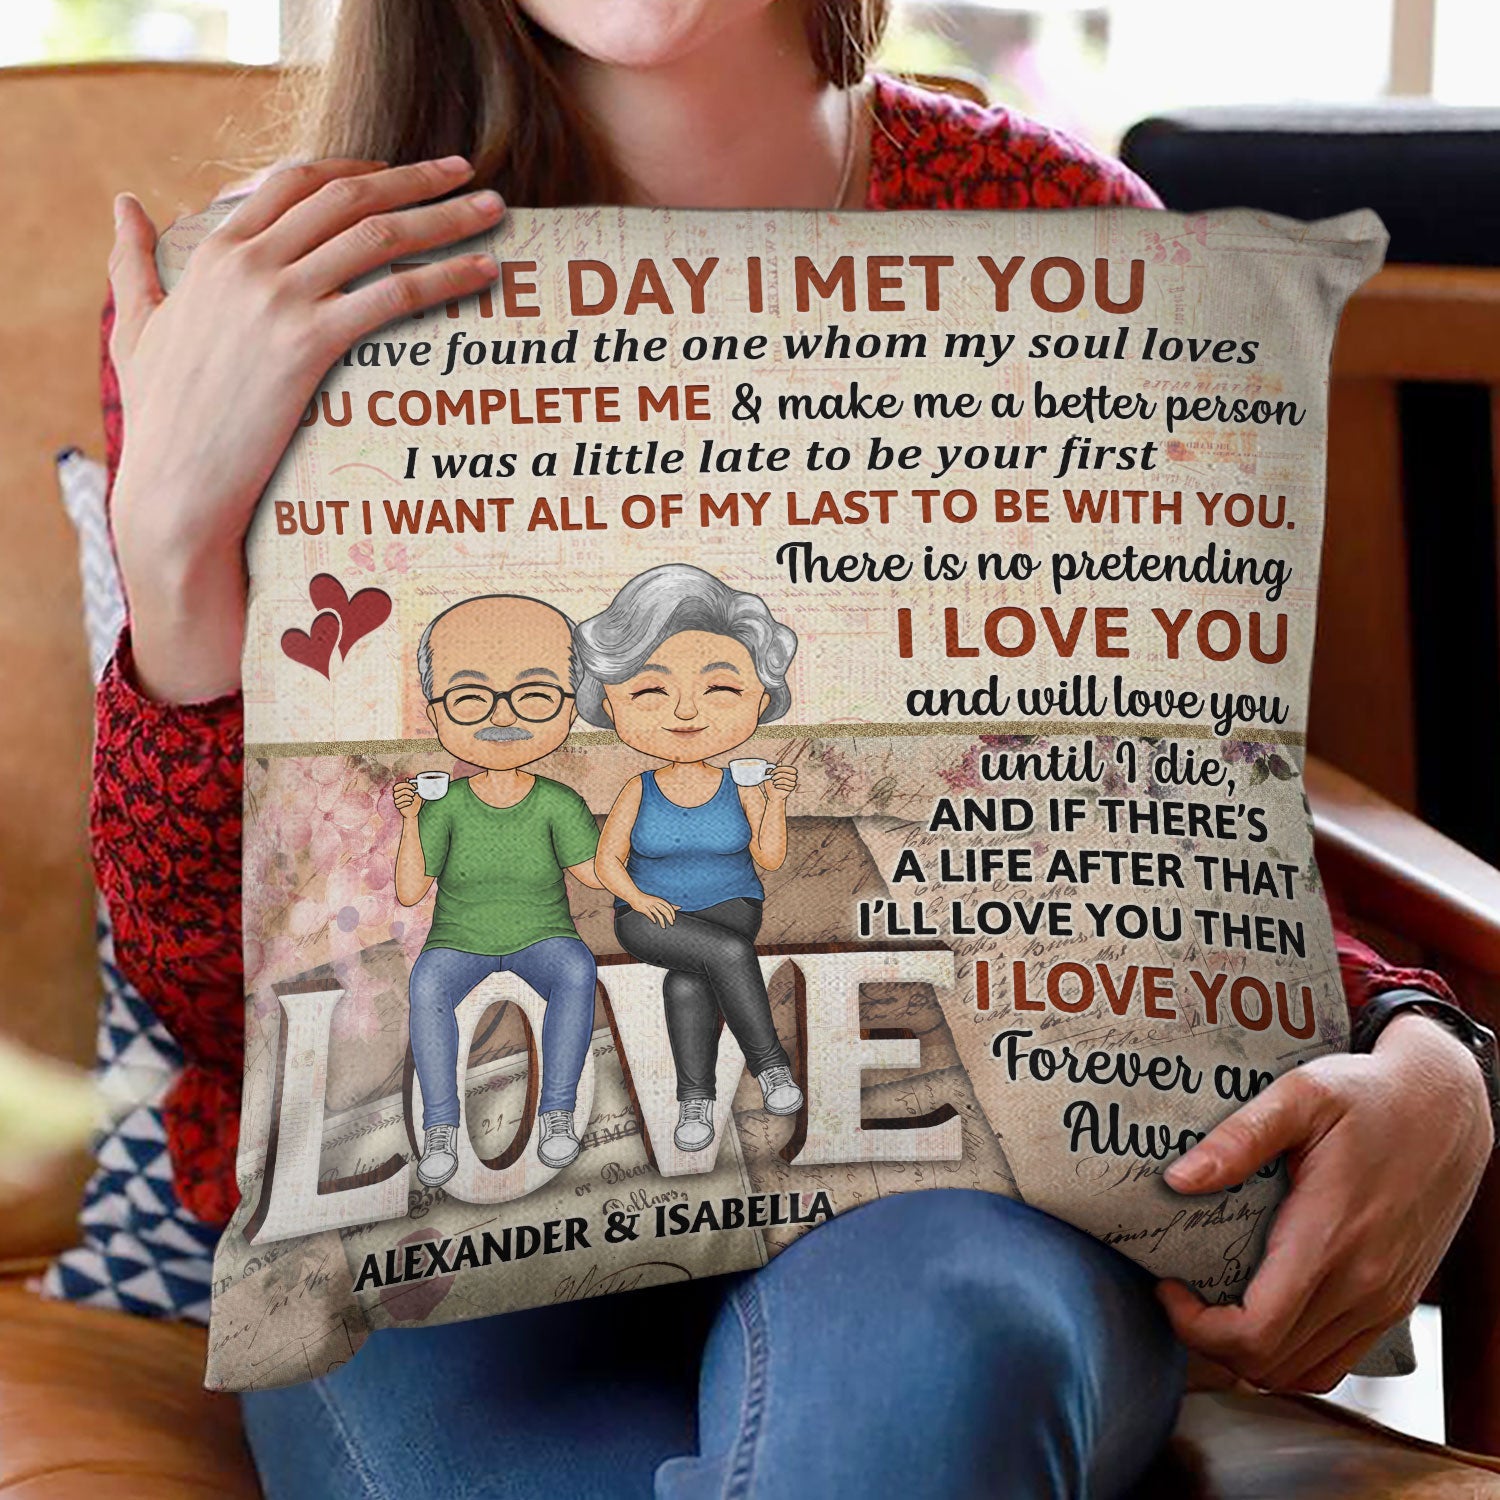 THE DAY I MET YOU
have found the one whom my soul loves
YOU COMPLETE ME & make me a better person
I was a little late to be your first
BUT I WANT ALL OF MY LAST TO BE WITH YOU.
There is no pretending
I LOVE YOU
and will love you
until I die,
AND IF THERE'S
A LIFE AFTER THAT
I'LL LOVE YOU THEN
I LOVE YOU
Forever and
Always
LOVE
ALEXANDER & ISABELLA